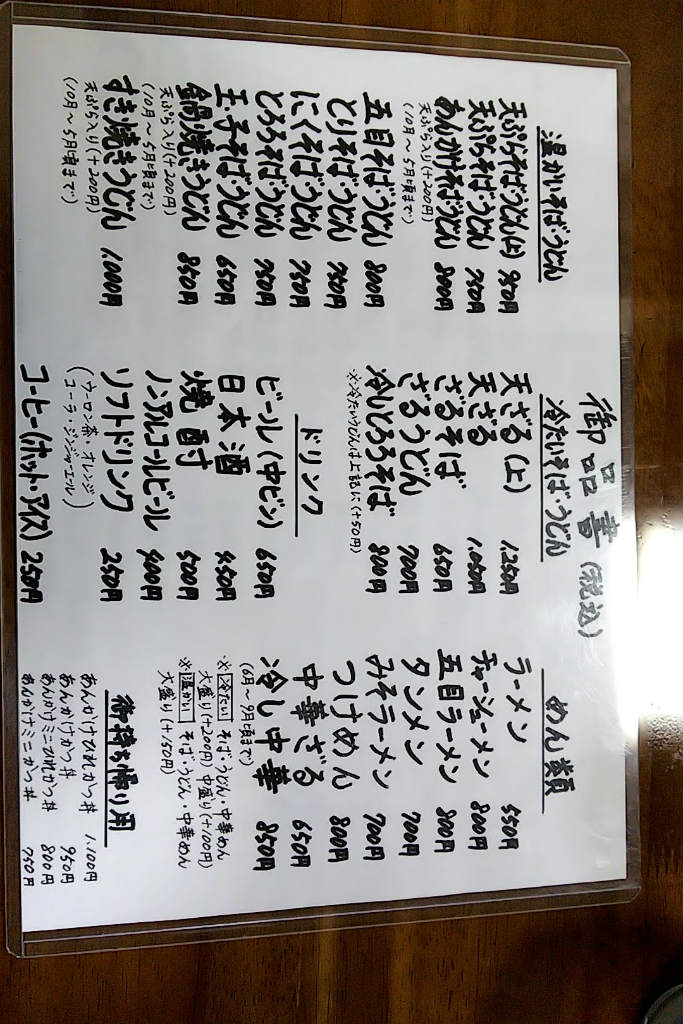 御品書(税込)
温かいそば・うどん
天ぷらそば・うどん(上) 950円
天ぷらそば・うどん 750円
あんかけそば・うどん 800円
天ぷら入り(+200円)
(10月〜5月頃まで)
五目そば・うどん 800円
とりそば・うどん 750円
にくそば・うどん 750円
とろろそば・うどん 750円
玉子そば・うどん 650円
鍋焼きうどん 850円
天ぷら入り(+200円)
(10月〜5月頃まで)
すき焼きうどん 1,000円
天ぷら入り(+200円)
(10月〜5月頃まで)
冷たいそば・うどん
天ざる(上) 1,250円
天ざる 1,050円
ざるそば 650円
ざるうどん 700円
冷しとろろそば 800円
※冷たいうどんは上記に(+50円)
ドリンク
ビール(中ビン) 650円
日本酒 450円
焼酎 500円
ノンアルコールビール 400円
ソフトドリンク 250円
(ウーロン茶・オレンジ
コーラ・ジンジャーエール)
コーヒー(ホット・アイス) 250円
めん類
ラーメン 550円
チャーシューメン 800円
五目ラーメン 800円
タンメン 700円
みそラーメン 700円
つけめん 800円
中華ざる 650円
冷し中華 850円
(6月〜9月頃まで)
※冷たい そば・うどん・中華めん
大盛り(+200円) 中盛り(+100円)
※温かい そば・うどん・中華めん
大盛り(+150円)
御持ち帰り用
あんかけひれかつ丼 1,100円
あんかけかつ丼 950円
あんかけミニひれかつ丼 800円
あんかけミニかつ丼 750円